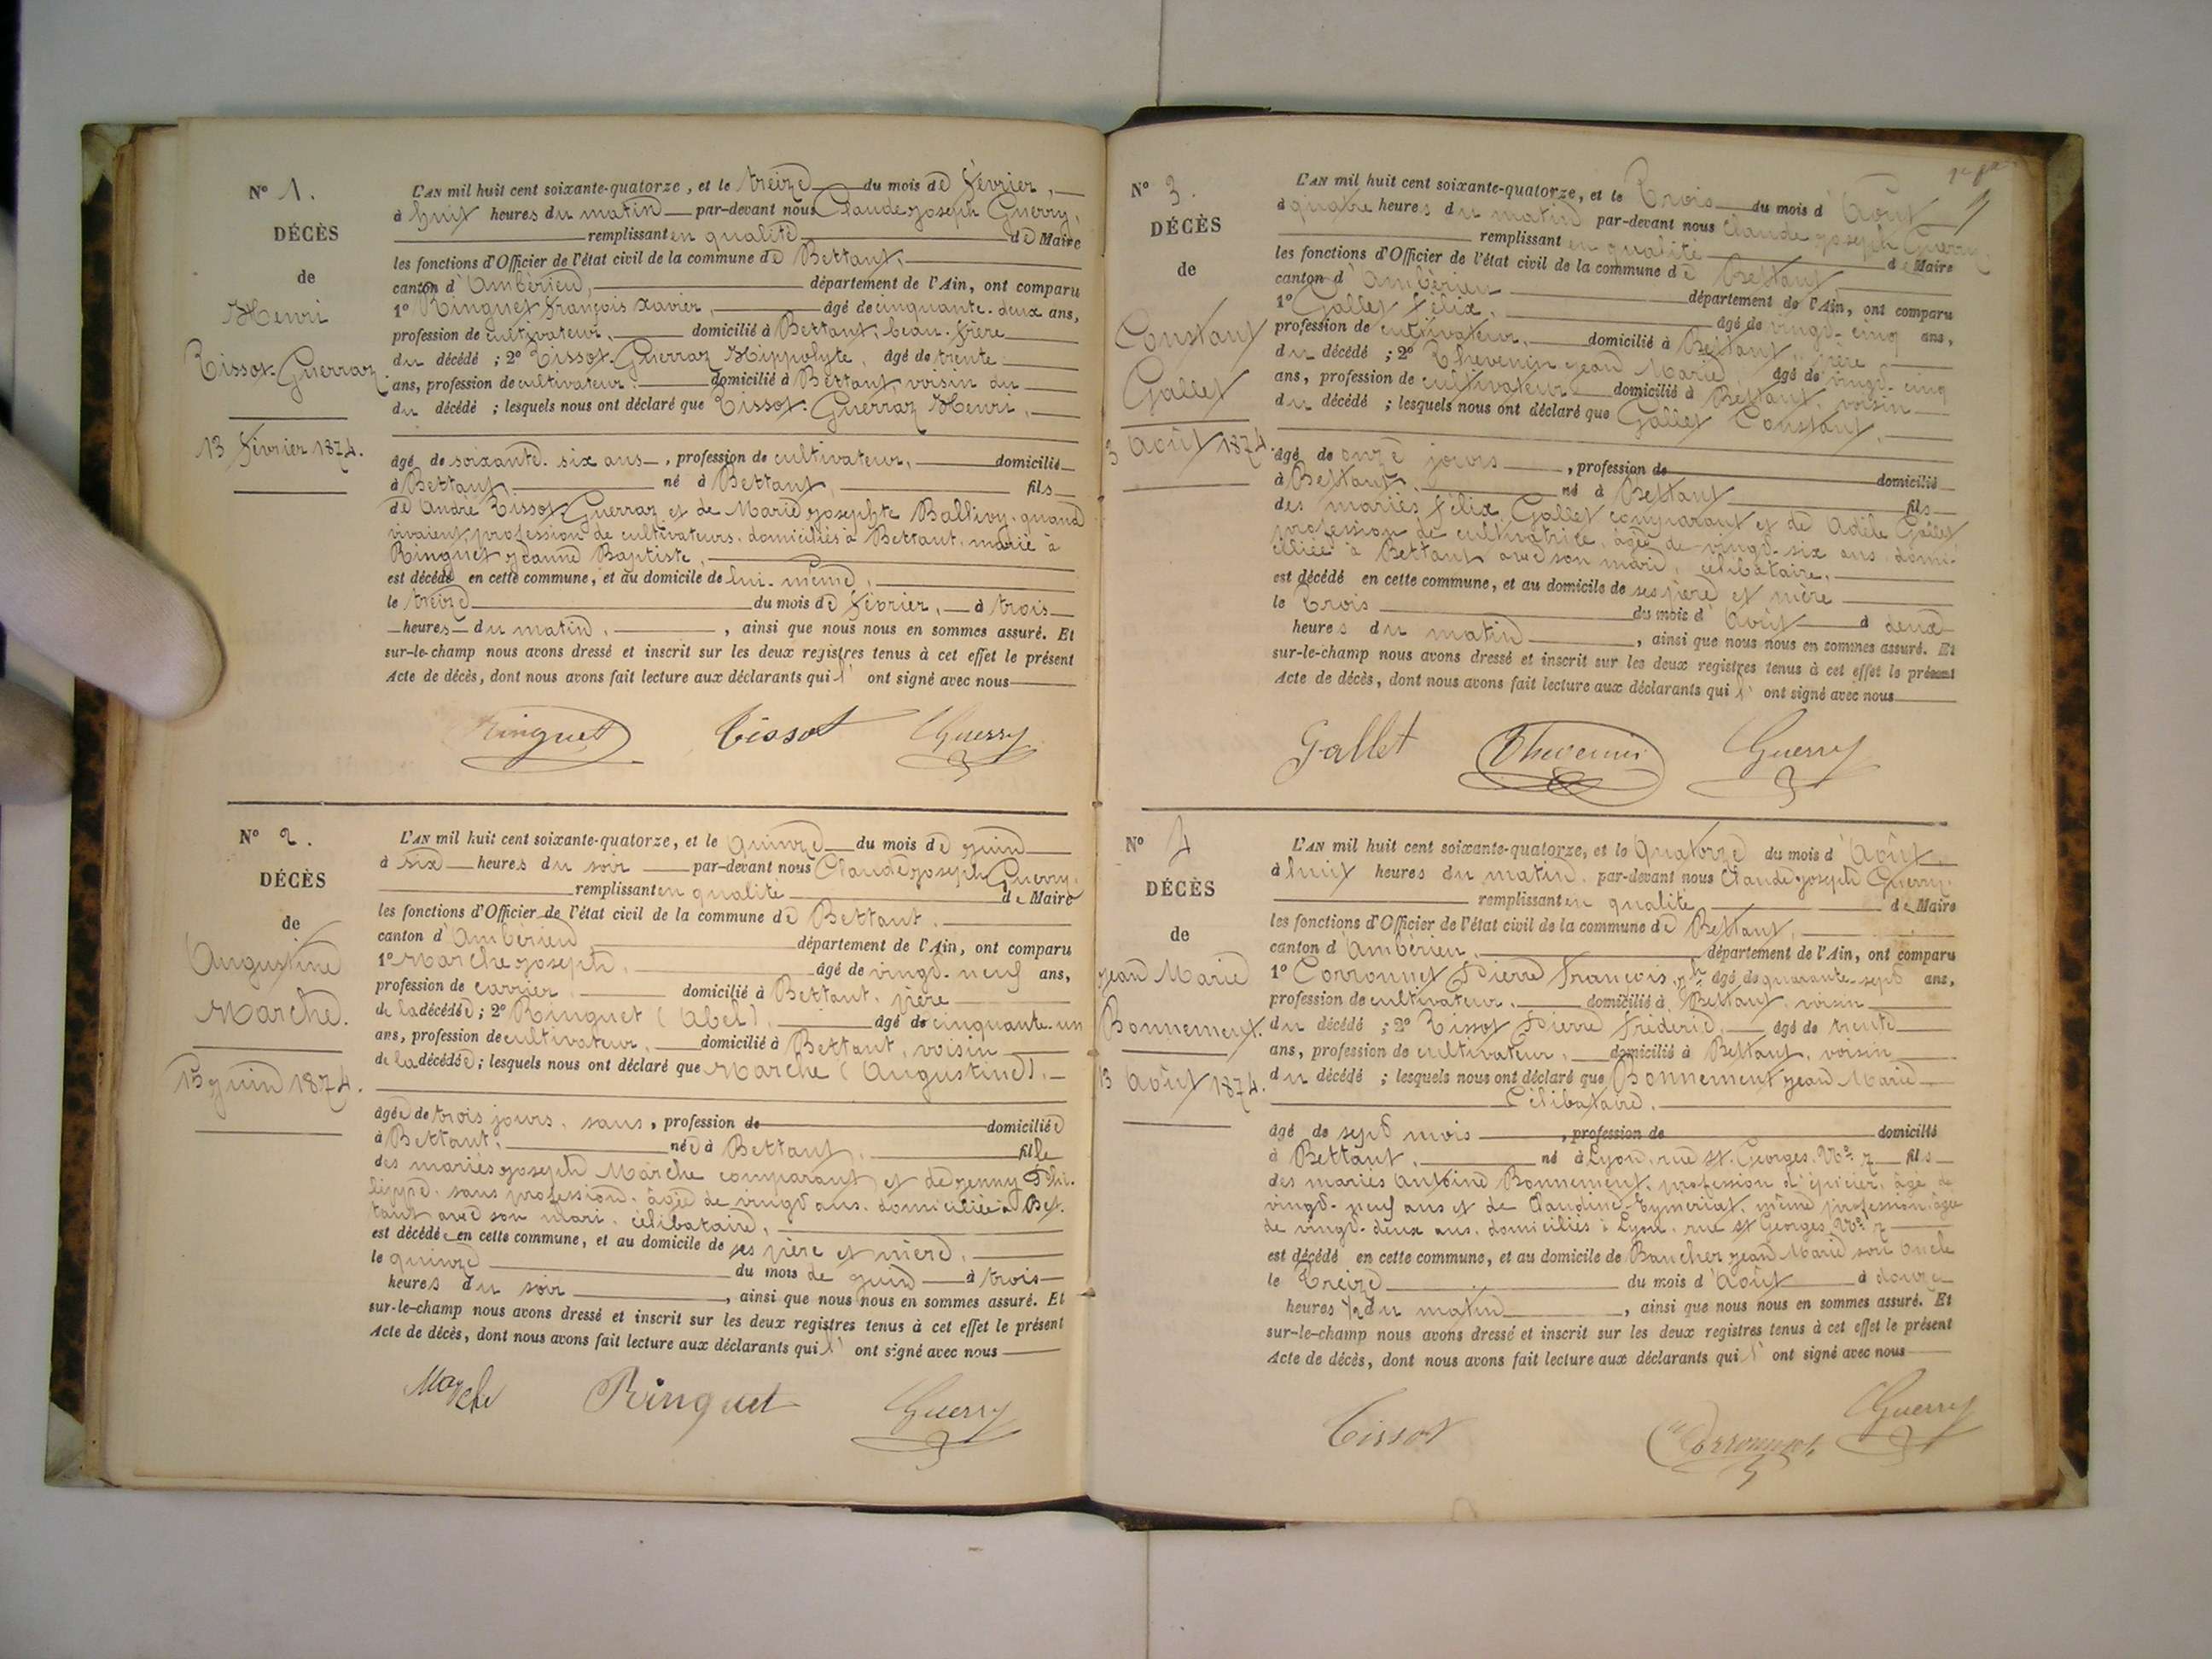 N° 1.
DÉCÈS
de
Henri
Tissot-Guerraz
13 février 1874.
L'AN mil huit cent soixante-quatorze, et le treize du mois de février,
à huit heures du matin par-devant nous Claude joseph Guerry,
remplissant en qualité de Maire
les fonctions d'Officier de l'état civil de la commune de Bettant,
canton d'Ambérieu, département de l'Ain, ont comparu
1° Ringuet françois xavier, âgé de cinquante-deux ans,
profession de cultivateur, domicilié à Bettant, beau-frère
du décédé ; 2° Tissot-Guerraz Hippolyte, âgé de trente
ans, profession de cultivateur, domicilié à Bettant, voisin du
du décédé ; lesquels nous ont déclaré que Tissot-Guerraz Henri,
âgé de soixante-six ans, profession de cultivateur, domicilié
à Bettant, né à Bettant, fils
de André Tissot-Guerraz et de Marie josephte Ballivy, quand
vivaient, profession de cultivateurs, domiciliés à Bettant, marié à
Ringuet jeanne Baptiste,
est décédé en cette commune, et au domicile de lui-même,
le treize du mois de février, à trois
heures du matin, ainsi que nous nous en sommes assuré. Et
sur-le-champ nous avons dressé et inscrit sur les deux registres tenus à cet effet le présent
Acte de décès, dont nous avons fait lecture aux déclarants qui l' ont signé avec nous
Ringuet Tissot Guerry
N° 2.
DÉCÈS
de
Augustine
Marche.
15 juin 1874.
L'AN mil huit cent soixante-quatorze, et le quinze du mois de juin
à six heures du soir par-devant nous Claude joseph Guerry,
remplissant en qualité de Maire
les fonctions d'Officier de l'état civil de la commune de Bettant,
canton d'Ambérieu, département de l'Ain, ont comparu
1° Marche joseph, âgé de vingt-neuf ans,
profession de carrier, domicilié à Bettant, père
de la décédée ; 2° Ringuet (Abel), âgé de cinquante-un
ans, profession de cultivateur, domicilié à Bettant, voisin
de la décédée ; lesquels nous ont déclaré que Marche (Augustine),
âgée de trois jours, sans, profession de domiciliée
à Bettant, née à Bettant, fille
des mariés joseph Marche comparant et de jenny Phi-
lippe, sans profession, âgée de vingt ans, domiciliée à Bet-
tant avec son mari, célibataire,
est décédée en cette commune, et au domicile de ses père et mère,
le quinze du mois de juin à trois
heures du soir, ainsi que nous nous en sommes assuré. Et
sur-le-champ nous avons dressé et inscrit sur les deux registres tenus à cet effet le présent
Acte de décès, dont nous avons fait lecture aux déclarants qui l' ont signé avec nous
Marche Ringuet Guerry
N° 3.
DÉCÈS
de
Constant
Gallet
3 Août 1874.
L'AN mil huit cent soixante-quatorze, et le Trois du mois d'Août
à quatre heures du matin par-devant nous Claude joseph Guerry,
remplissant en qualité de Maire
les fonctions d'Officier de l'état civil de la commune de Bettant,
canton d'Ambérieu département de l'Ain, ont comparu
1° Gallet félix, âgé de vingt-cinq ans,
profession de cultivateur, domicilié à Bettant, père
du décédé ; 2° Thevenin jean Marie, âgé de vingt-cinq
ans, profession de cultivateur domicilié à Bettant, voisin
du décédé ; lesquels nous ont déclaré que Gallet Constant,
âgé de onze jours, profession de domicilié
à Bettant, né à Bettant fils
des mariés félix Gallet comparant et de Adèle Gallet
profession de cultivatrice, âgée de vingt-six ans, domi-
ciliée à Bettant avec son mari, célibataire,
est décédé en cette commune, et au domicile de ses père et mère
le Trois du mois d'Août à deux
heures du matin, ainsi que nous nous en sommes assuré. Et
sur-le-champ nous avons dressé et inscrit sur les deux registres tenus à cet effet le présent
Acte de décès, dont nous avons fait lecture aux déclarants qui l' ont signé avec nous
Gallet Thevenin Guerry
N° 4
DÉCÈS
de
jean Marie
Bonnement.
13 Août 1874.
L'AN mil huit cent soixante-quatorze, et le Quatorze du mois d'Août
à huit heures du matin, par-devant nous Claude joseph Guerry,
remplissant en qualité de Maire
les fonctions d'Officier de l'état civil de la commune de Bettant,
canton d'Ambérieu, département de l'Ain, ont comparu
1° Corronnet Pierre françois, âgé de quarante-sept ans,
profession de cultivateur, domicilié à Bettant, voisin
du décédé ; 2° Tissot Pierre fréderic, âgé de trente
ans, profession de cultivateur, domicilié à Bettant, voisin
du décédé ; lesquels nous ont déclaré que Bonnement jean Marie
Célibataire,
âgé de sept mois, profession de domicilié
à Bettant, né à Lyon, rue St. Georges, N° 7 fils
des mariés Antoine Bonnement, profession d'épicier, âgé de
vingt-neuf ans et de Claudine Eymericat, même profession, âgée
de vingt-deux ans, domiciliés à Lyon, rue St Georges, N° 7
est décédé en cette commune, et au domicile de Baucher jean Marie son oncle
le Treize du mois d'Août à douze
heures 1/2 du matin, ainsi que nous nous en sommes assuré. Et
sur-le-champ nous avons dressé et inscrit sur les deux registres tenus à cet effet le présent
Acte de décès, dont nous avons fait lecture aux déclarants qui l' ont signé avec nous
Tissot Corronnet Guerry